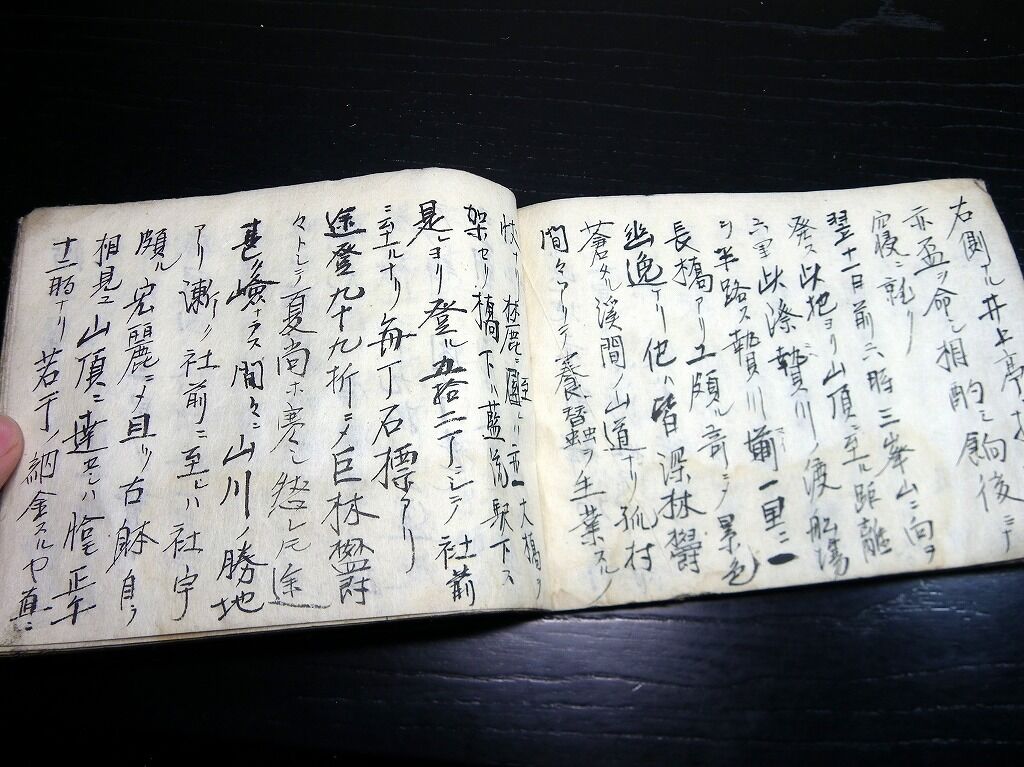 右側アル井上亭ニ
亦盃ヲ命シ相酌ミ餉後ニテ
寝ニ就ク
翌十一日前六時三峯山ニ向ヲ
発ス此地ヨリ山頂ニ至ル距離
六里此際贄川ノ渡船場
半路ス贄川嶺一里ニ
長橋アリ工頗ル奇ニシテ景色
幽逸ナリ他ハ皆深林欝
蒼タル渓間ノ山道ナリ孤村
間々アリテ養蚕ヲ生業スル
ナリ麓ニ至レハ亦一大橋ヲ
架セリ橋下ハ藍流駅下ス
是ヨリ登ル五拾二丁ニシテ社前
ニ至ルナリ毎丁石標アリ
途登九十九折ニメ巨林欝
々トシテ夏尚ホ寒シ然レ圧途
甚タ嶮ナラス間々ニ山川ノ勝地
アリ漸ク社前ニ至レハ社宇
頗ル宏麗ニメ且ツ古躰自ラ
相見ユ山頂ニ達セシハ恰モ正午
十二時ナリ若干ノ納金スルヤ直ニ